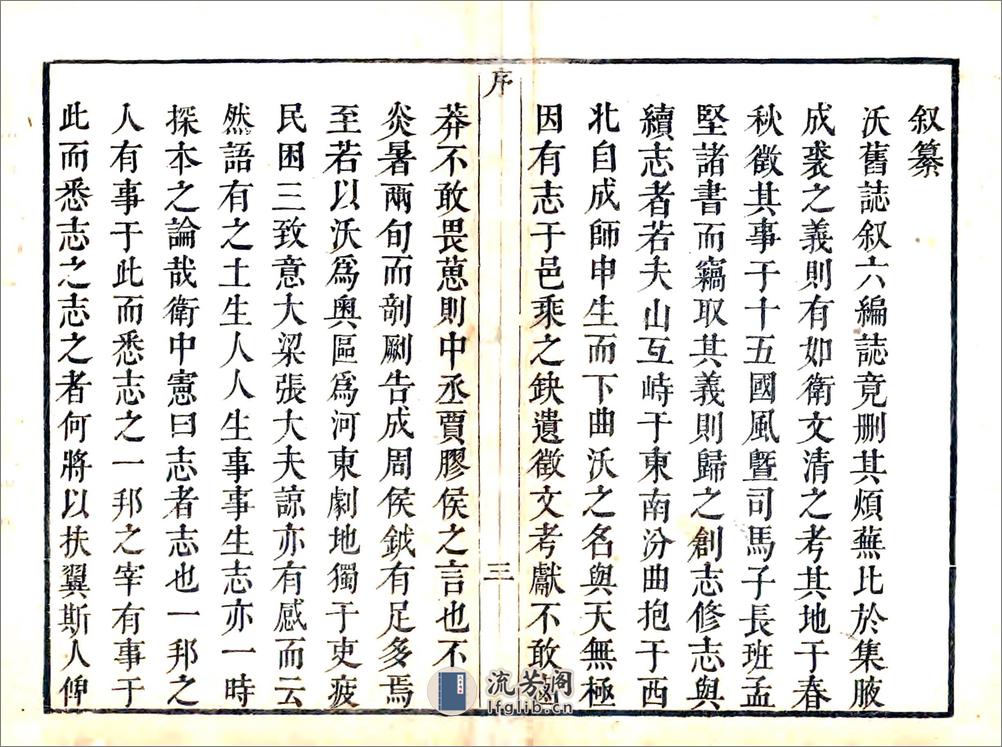 叙纂
沃舊誌叙六編誌竟删其煩蕪比於集腋
成裘之義則有如衛文清之考其地于春
秋徵其事于十五國風暨司馬子長班孟
堅諸書而竊取其義則歸之創志修志與
續志者若夫山互峙于東南汾曲抱于西
北自成師申生而下曲沃之名與天無極
因有志于邑乘之缺遺徵文考獻不敢
序
三
莽不敢畏葸則中丞賈膠侯之言也不
炎暑兩旬而剞劂告成周侯鉞有足多焉
至若以沃爲奥區爲河東劇地獨于吏疲
民困三致意大梁張大夫諒亦有感而云
然語有之土生人人生事事生志亦一時
探本之論哉衛中憲曰志者志也一邦之
人有事于此而悉志之一邦之宰有事于
此而悉志之志之者何將以扶翼斯人俾
流芳阁
lfglib.cn